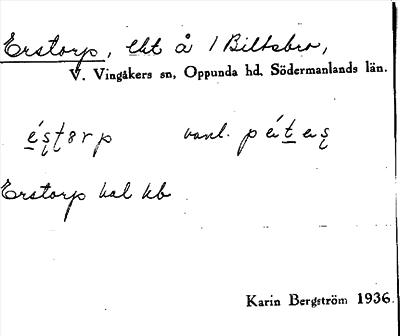 Erstorp, lht å 1 Biltsbro,
V. Vingåkers sn, Oppunda hd, Södermanlands län.
vanl.
Erstorp hal kb
Karin Bergström 1936.